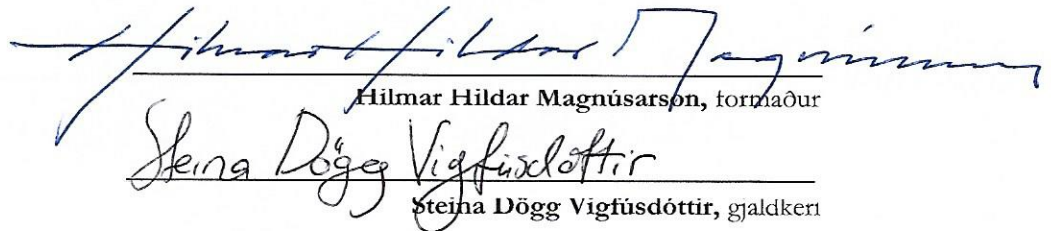 Hilmar Hildar Magnúsarson
Hilmar Hildar Magnúsarson, formaður
Steina Dögg Vigfúsdóttir
Steina Dögg Vigfúsdóttir, gjaldkeri